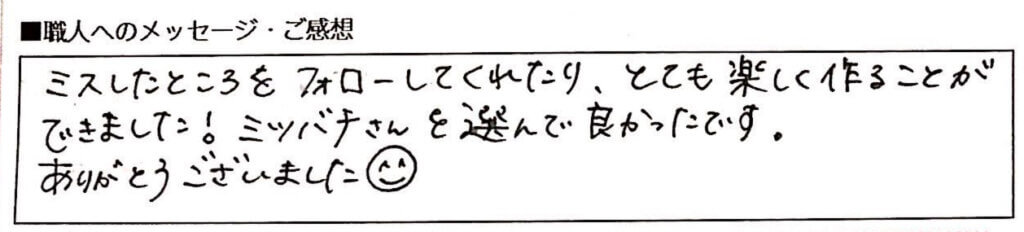 ■職人へのメッセージ・ご感想
ミスしたところをフォローしてくれたり、とても楽しく作ることが
できました！ミツバチさんを選んで良かったです。
ありがとうございました☺